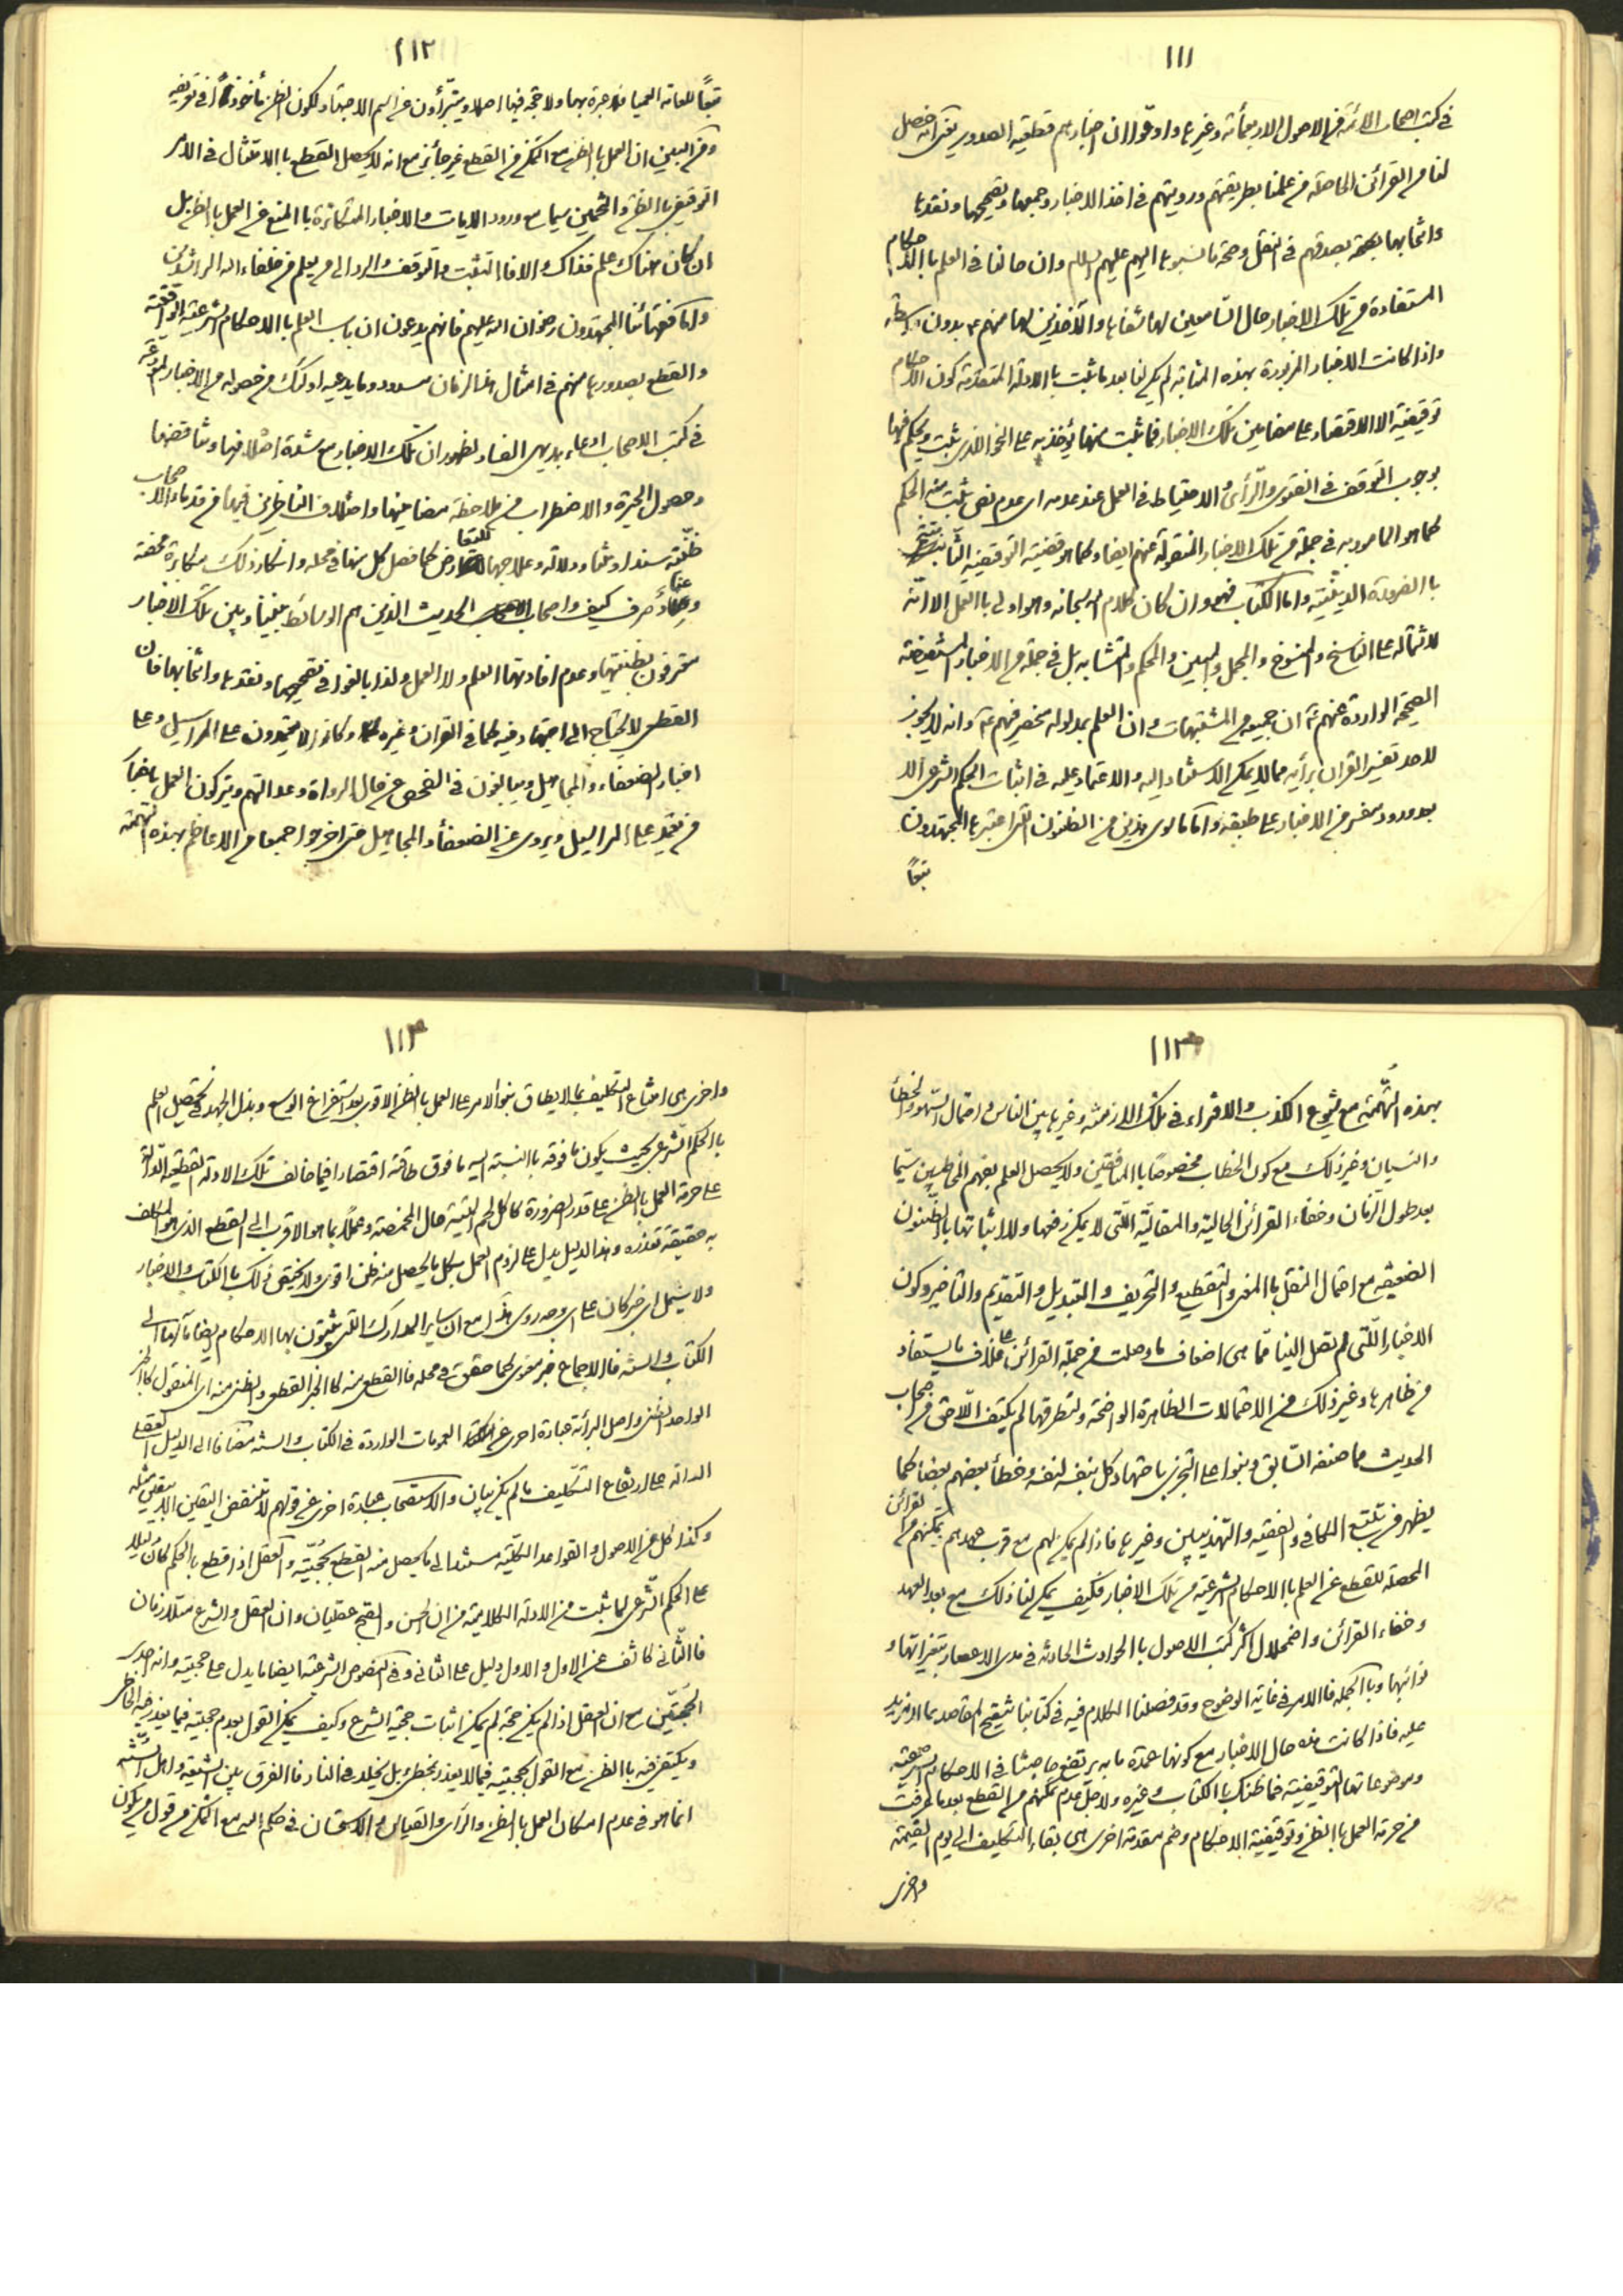 ١١١
في كتب اصحاب الائمة من الاصول الاربعمائة وغيرها وادعوا ان اخبارهم قطعية الصدور يعني انه حصل
لنا من القرائن الحاصلة من علمنا بطريقتهم ورويتهم في اخذ الاخبار وجمعها وتصحيحها ونقدها
وانتخابها بصدقهم في النقل وصحة ما نسبوها اليهم عليهم السلام وان حالنا في العلم باالاحكام
المستفادة من تلك الاخبار حال السامعين لها شفاها والآخذين لها منهم ع بدون واسطة
واذا كانت الاخبار المزبورة بهذه المثابة لم يكن لنا بعد ما ثبت باالادلة المتقدمة كون الاحكام
توقيفية الا الاقتصار على مضامين تلك الاخبار فما ثبت منها يؤخذ به على النحو الذي ثبت ويحكم فيها
بوجوب التوقف في الفتوى والرأي والاحتياط في العمل عند عدمه اي عدم نص يثبت منه الحكم
كما هو المأمور به في جملة من تلك الاخبار المنقولة عنهم ايضا وكما هو قضية التوقيفية الثابتة
باالضرورة الدينية واما الكتاب فهو وان كان كلام الله سبحانه وهو اولى باالعمل الا انه
لاشتماله على الناسخ والمنسوخ والمجمل والمبين والمحكم والمتشابه بل في جملة من الاخبار المستفيضة
الصحيحة الواردة عنهم ع ان جميعه من المشتبهات وان العلم بمدلوله منحصر فيهم ع وانه لا يجوز
لاحد تفسير القران برأيه مما لا يمكن الاستناد اليه والاعتماد عليه في اثبات الحكم الشرعي الا
بعد ورود مفسر من الاخبار على طبقه واما ما سوى هذين من الظنون التي اعتبرها المجتهدون
تبعا
١١٢
تبعا للعامة العمياء فلا عبرة بها ولا حجية فيها اصلا ويتبرأون من اسم الاجتهاد لكون الظن مأخوذا في تعريفه
ومن البين ان العمل باالظن مع التمكن من القطع غير جائز مع انه لا يحصل القطع باالامتثال في الامر
التوقيفي باالظن والتخمين سيما مع ورود الايات والاخبار المتكاثرة باالمنع من العمل باالظن بل
ان كان هناك علم فذاك والا فاالتثبت والتوقف والرد الى من يعلم من خلفاء الله الراشدين
واما فقهائنا المجتهدون رضوان الله عليهم فانهم يدعون ان باب العلم باالاحكام الشرعية الواقعية
والقطع بصدورها منهم في امثال هذا الزمان مسدود وما يدعيه اولئك من حصوله من الاخبار المودعة
في كتب الاصحاب ادعاء بديهي الفساد لظهور ان تلك الاخبار مع شدة اختلافها وتناقضها
وحصول الحيرة والاضطراب من ملاحظة مضامينها واختلاف الناظرين فيها من قدماء الاصحاب
ظنية سندا ومتنا ودلالة وعلاجها للتعارض كما فصل كل منها في محله وانكار ذلك مكابرة محضة
وعناد صرف كيف واصحاب الحديث الذين هم الوسائط بيننا وبين تلك الاخبار
معترفون بظنيتها وعدم افادتها العلم ولا العمل ولذا بالغوا في تصحيحها ونقدها وانتخابها فان
القطعي لا يحتاج الى اجتهاد فيه كما في القران وغيره وكانوا لا يعتمدون على المراسيل وعلى
اخبار الضعفاء والمجاهيل ويبالغون في الفحص عن حال الرواة وعدالتهم ويتركون العمل باخبار
من يعتمد على المراسيل ويروي عن الضعفاء والمجاهيل حتى اخرجوا جمعا من الاعاظم بهذه التهمة
١١٣
بهذه التهمة مع شيوع الكذب والافتراء في تلك الازمنة وغيرها بين الناس واحتمال السهو والخطأ
والنسيان وغير ذلك مع كون الخطاب مخصوصا باالمشافهين ولا يحصل العلم بفهم المخاطبين سيما
بعد طول الزمان وخفاء القرائن الحالية والمقالية اللتي لا يمكن رفعها ولا اثباتها باالظنون
الضعيفة مع احتمال النقل باالمعنى والتقطيع والتحريف والتبديل والتقديم والتأخير وكون
الاخبار اللتي لم تصل الينا مما هي اضعاف ما وصلت من جملة القرائن على خلاف ما يستفاد
من ظاهرها وغير ذلك من الاحتمالات الظاهرة الواضحة ولتطرقها لم يكتف اللاحق من اصحاب
الحديث مما صنفه السابق وبنوا على التحري باجتهاد كل بنفسه لنفسه وخطأ بعضهم بعضا كما
يظهر من تتبع الكافي والفقيه والتهذيبين وغيرها فاذا لم يكن لهم مع قرب عهدهم وتمكنهم من القرائن
المحصلة للقطع عن العلم باالاحكام الشرعية من تلك الاخبار فكيف يمكن لنا ذلك مع بعد العهد
وخفاء القرائن واضمحلال اكثر كتب الاصول باالحوادث الحادثة في مدى الاعصار بتغيراتها و
نوائبها وباالجملة فاالامر في غاية الوضوح وقد فصلنا الكلام فيه في كتابنا تنقيح المقاصد بما لا مزيد
عليه فاذا كانت هذه حال الاخبار مع كونها عمدة ما به يرتفع حاجتنا في الاحكام الشرعية
وموضوعاتها التوقيفية فما ظنك باالكتاب وغيره ولاجل عدم تمكنهم من القطع بعد ما عرفت
من حرمة العمل باالظن وتوقيفية الاحكام وضم مقدمة اخرى هي بقاء التكليف الى يوم القيمة
واخرى
١١٣
واخرى هي امتناع التكليف بما لا يطاق بنوا الامر على العمل باالظن الاقوى بعد استفراغ الوسع وبذل الجهد في تحصيل العلم
باالحكم الشرعي بحيث يكون ما فوقه باالنسبة اليه ما فوق طاقته اقتصارا فيما خالف تلك الادلة القطعية الدالة
على حرمة العمل باالظن على قدر الضرورة كاكل لحم الميتة حال المخمصة وعملا بما هو الاقرب الى القطع الذي هو المكلف
به حقيقة تعذره وهذا الدليل يدل على لزوم العمل بكل ما يحصل منه ظن اقوى ولا يختص ذلك باالكتاب والاخبار
ولا يشمل اي خبر كان على اي وجه روي هذا مع ان ساير المدارك التي يثبتون بها الاحكام ايضا مآلها الى
الكتاب والسنة فاالاجماع خبر معنوي كما حققت في محله فاالقطعي منه كاالخبر القطعي والظني منه اي المنقول كاالخبر
الواحد الظني واصل البرائة عبارة اخرى عن العمومات الواردة في الكتاب والسنة مضافا الى الدليل العقلي
الدالة على ارتفاع التكليف ما لم يكن بيان والاستصحاب عبارة اخرى عن قولهم لا تنقض اليقين الا بيقين مثله
وكذا كل من الاصول والقواعد الكلية مستندا الى ما يحصل منه القطع بحجيته والعقل اذا قطع باالحكم كان دليلا
على الحكم الشرعي لما ثبت من الادلة الكلامية من ان الحسن والقبح عقليان وان العقل والشرع متلازمان
فاالثاني كاشف عن الاول والاول دليل على الثاني وفي النصوص الشرعية ايضا ما يدل على حجيته وانه احدى
الحجتين مع ان العقل اذا لم يكن حجة لم يمكن اثبات حجية الشرع وكيف يمكن القول بعدم حجيته فيما يعذر فيه الخاطي
ويكتفى فيه باالظن مع القول بحجيته فيما لا يعذر المخطي بل يخلد في النار فاالفرق بين الشيعة واهل السنة
انما هو في عدم امكان العمل باالظن والرأي والقياس والاستحسان في حكم الله مع التمكن من قول من يكون